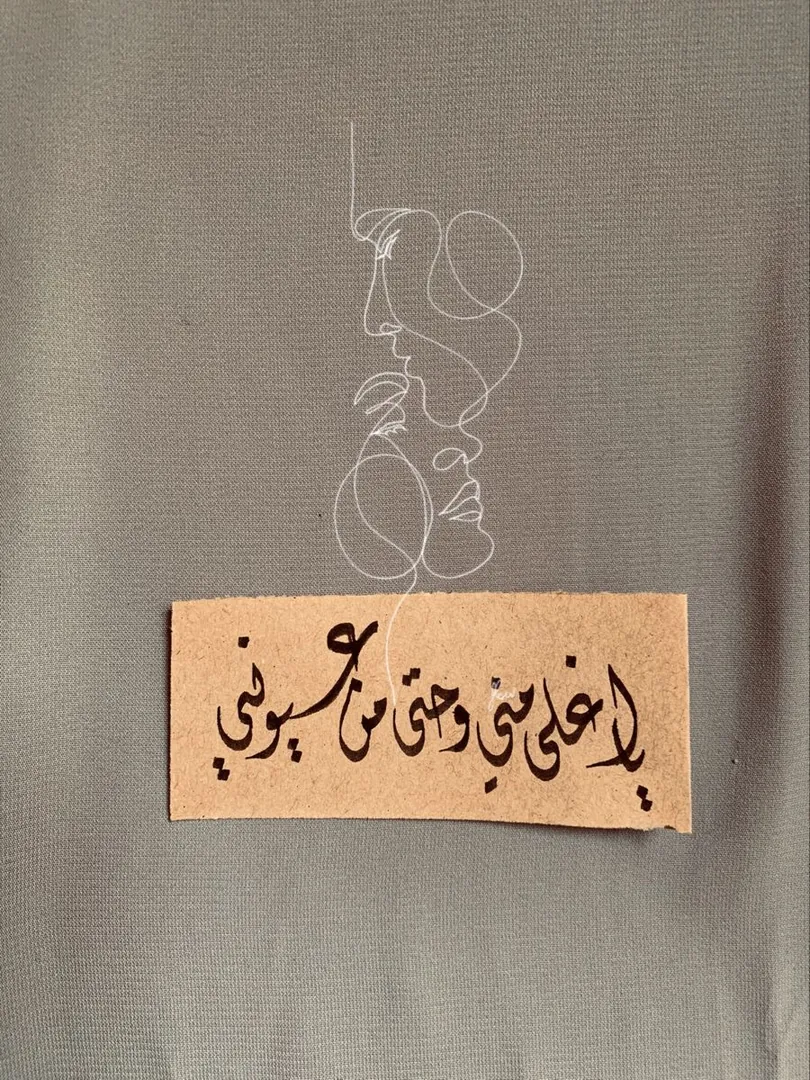 يا غلى مني وحتى من عيوني